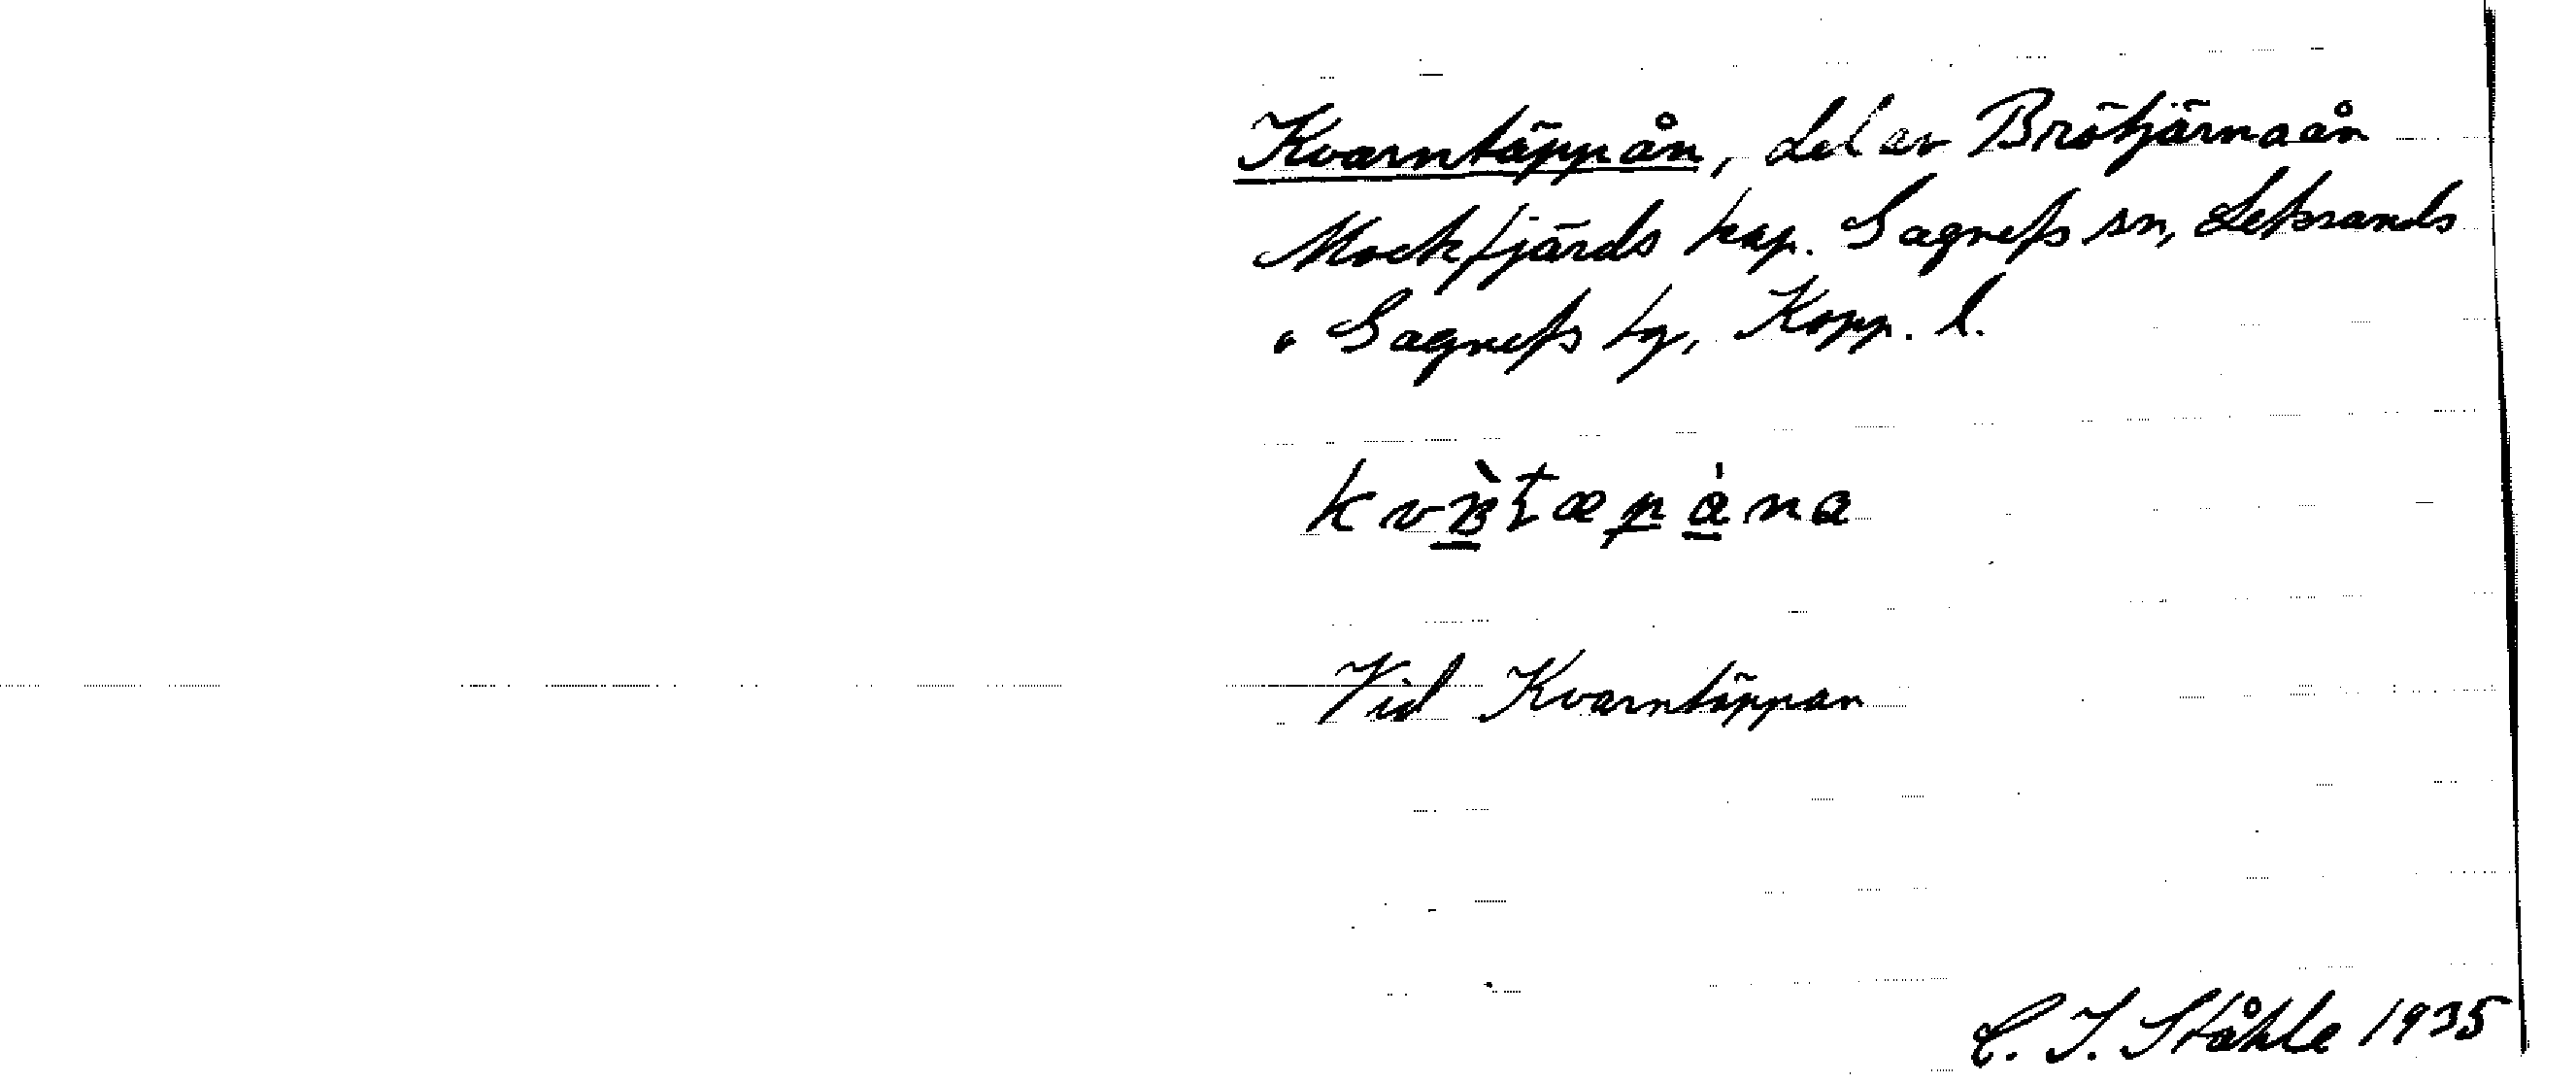 Kvarntäppån, del av Brötjärnaån
Mockfjärds kap. Gagnefs sn, Leksands
o. Gagnefs tg, Kopp. l.
Vid Kvarntäppan
C. I. Ståhle 1935